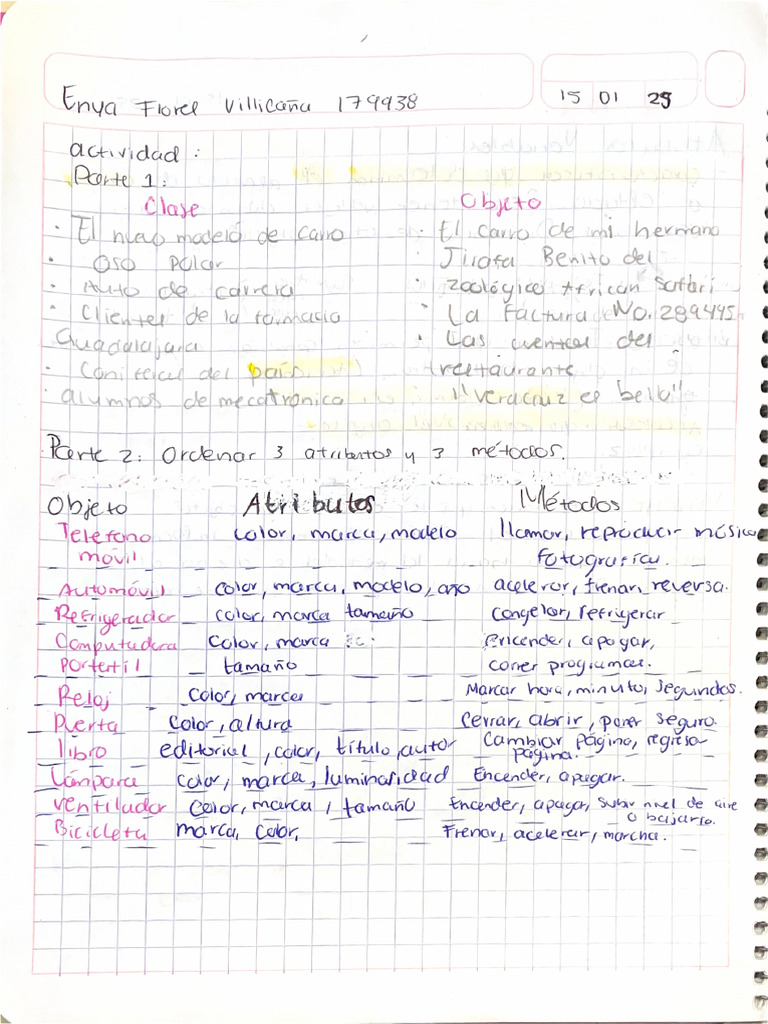 Enya Flores Villicaña 179938
15 01 25
actividad:
Parte 1:
Clase Objeto
· El nuevo modelo de carro · El carro de mi hermano
· Oso Polar · Jirafa Benito del
· Auto de carrera zoológico African Safari
· Clientes de la farmacia · La Factura No. 289445
Guadalajara · Las cuentas del
· del país restaurante
· alumnos de mecatronica "Veracruz es bello"
Parte 2: Ordenar 3 atributos y 3 métodos.
Objeto Atributos Métodos
Telefono color, marca, modelo llamar, reproducir música
móvil fotografia.
Automóvil color, marca, modelo, año acelerar, frenar, reversa.
Refrigerador color, marca tamaño congelar, refrigerar
Computadora Color, marca Encender, apagar,
portertil tamaño correr programas.
Reloj Color, marca Marcar hora, minuto, segundos.
Puerta Color, altura Cerrar, abrir, poner seguro.
libro editorial, color, título, autor Cambiar página, regresa
página.
Lámpara color, marca, luminosidad Encender, apagar.
ventilador color, marca, tamaño Encender, apagar, subir nivel de aire
o bajarlo.
Bicicleta marca, color, Frenar, acelerar, marcha.